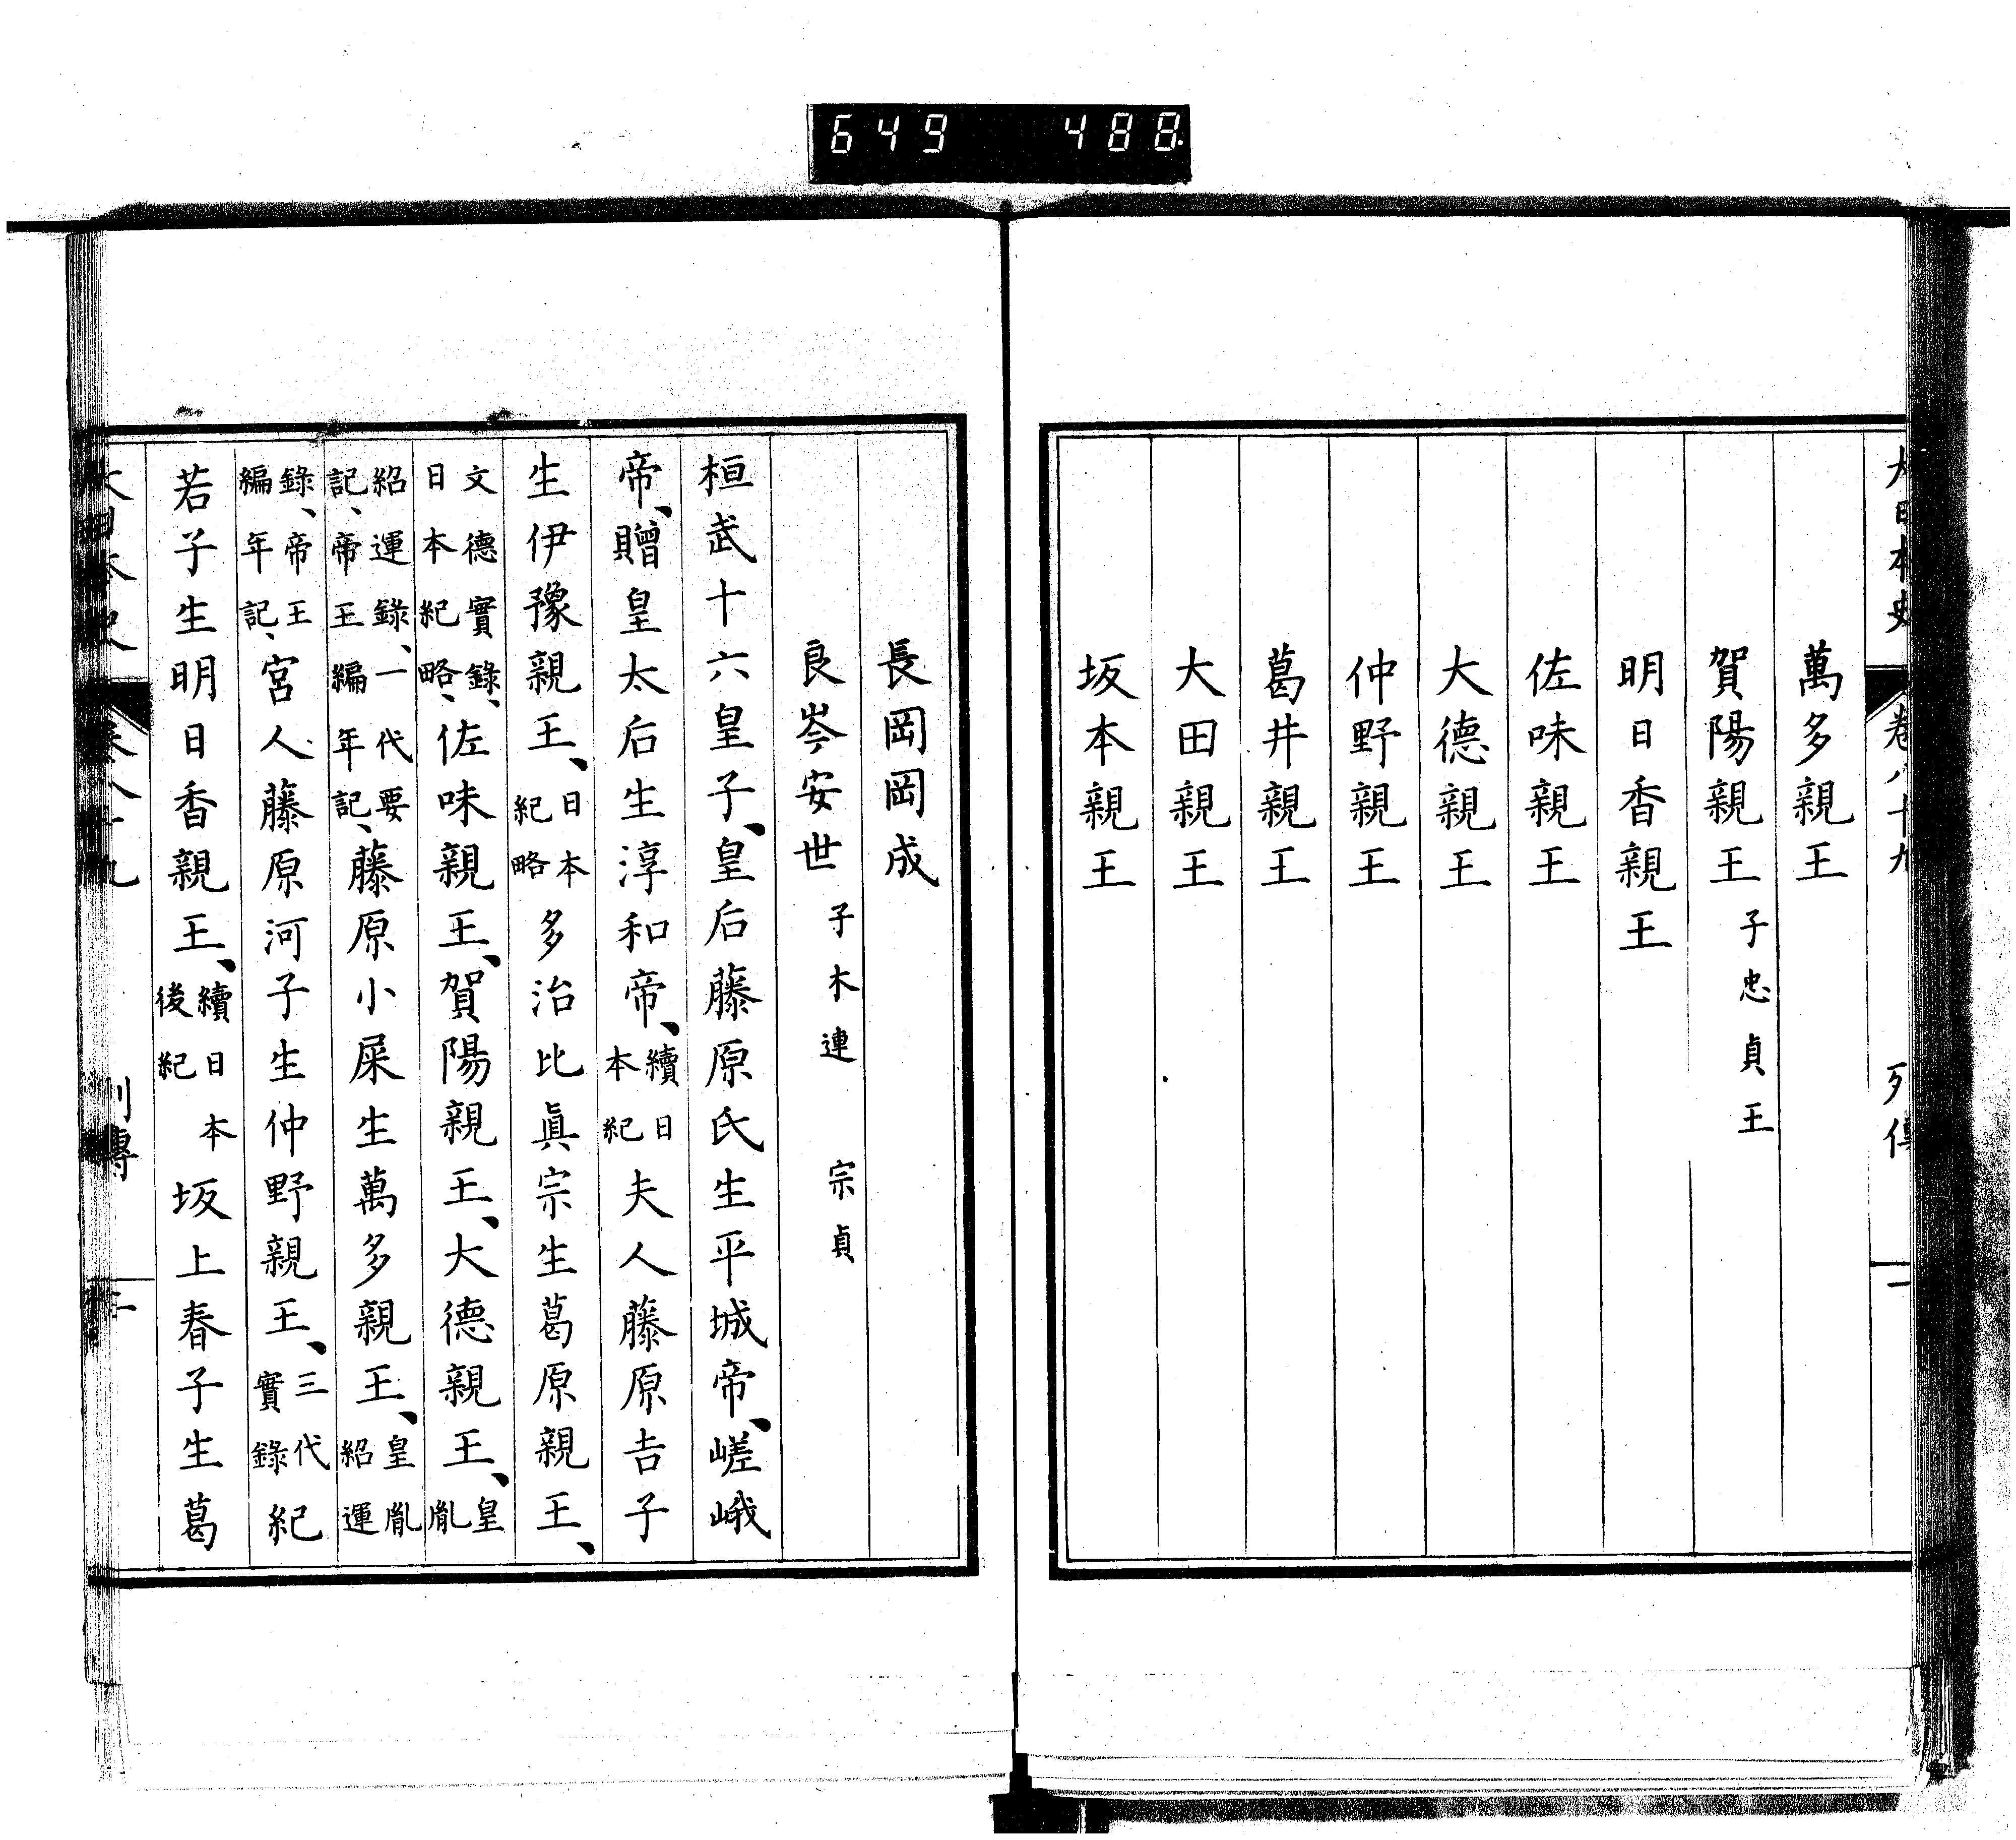 649 488
大日本史 卷八十九 列傳 一
萬多親王
賀陽親王 子忠貞王
明日香親王
佐味親王
大德親王
仲野親王
葛井親王
大田親王
坂本親王
長岡岡成
良岑安世 子木連 宗貞
桓武十六皇子、皇后藤原氏生平城帝、嵯峨
帝、贈皇太后生淳和帝、續日本紀夫人藤原吉子
生伊豫親王、日本紀略多治比眞宗生葛原親王、
佐味親王、賀陽親王、大德親王、皇胤
紹運錄、一代要記、帝王編年記、藤原小屎生萬多親王、皇胤紹運
錄、帝王編年記、宮人藤原河子生仲野親王、三代實錄紀
若子生明日香親王、續日本後紀坂上春子生葛